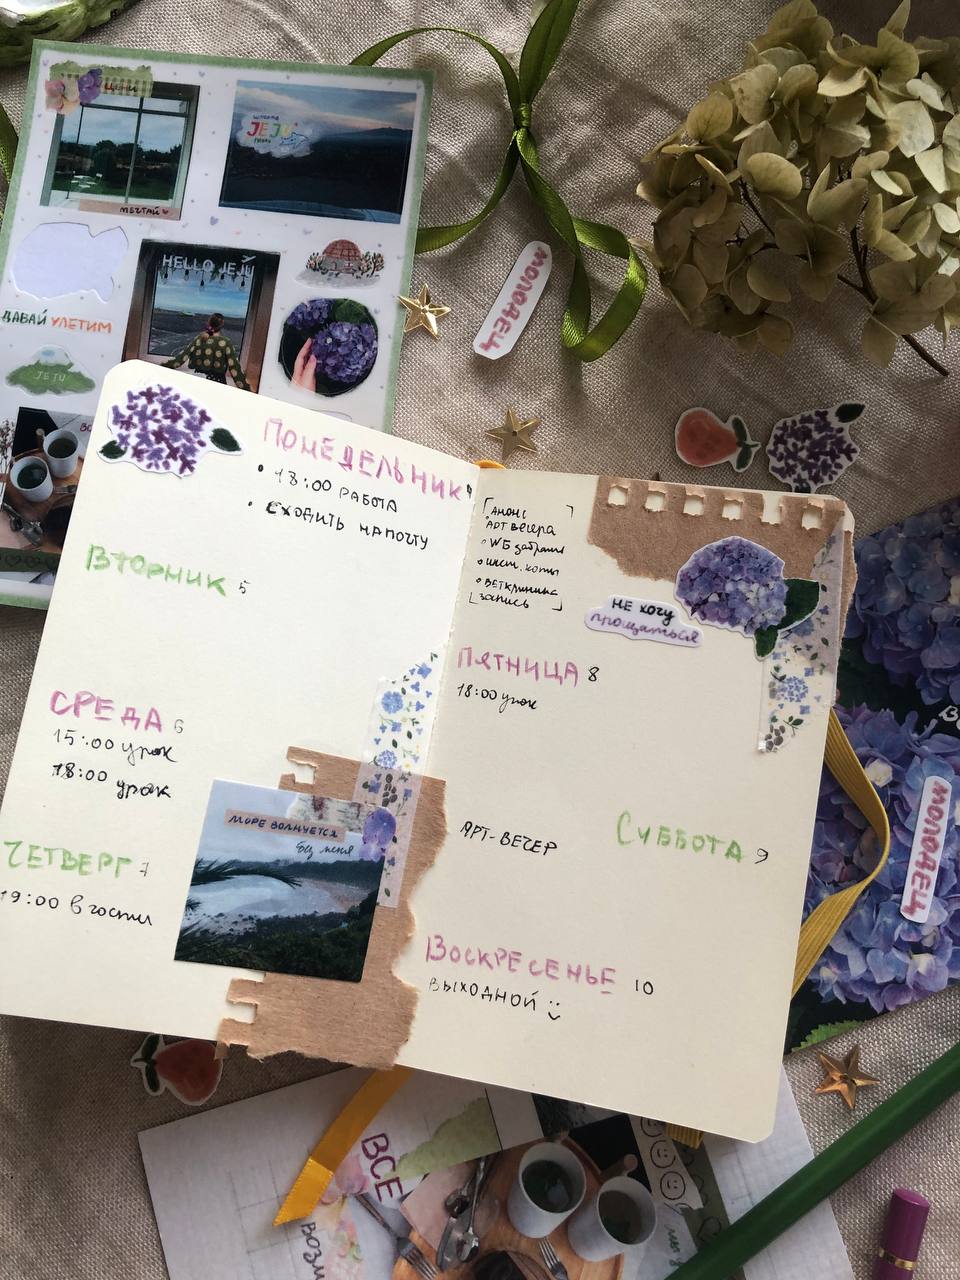 МЕЧТАЙ
JEJU
HELLO JEJU
ДАВАЙ УЛЕТИМ
JEJU
МОЛОДЕЦ
ПОНЕДЕЛЬНИК 4
• 18:00 РАБОТА
• СХОДИТЬ НА ПОЧТУ
ВТОРНИК 5
СРЕДА 6
15:00 урок
18:00 урок
ЧЕТВЕРГ 7
19:00 в гости
МОРЕ ВОЛНУЕТСЯ
без меня
АНОНС
АРТ вечера
• WB забрать
• ВЕТКЛИНИКА
ЗАПИСЬ
НЕ ХОЧУ
прощаться
ПЯТНИЦА 8
18:00 урок
АРТ-ВЕЧЕР
СУББОТА 9
ВОСКРЕСЕНЬЕ 10
ВЫХОДНОЙ
МОЛОДЕЦ
ВСЕ